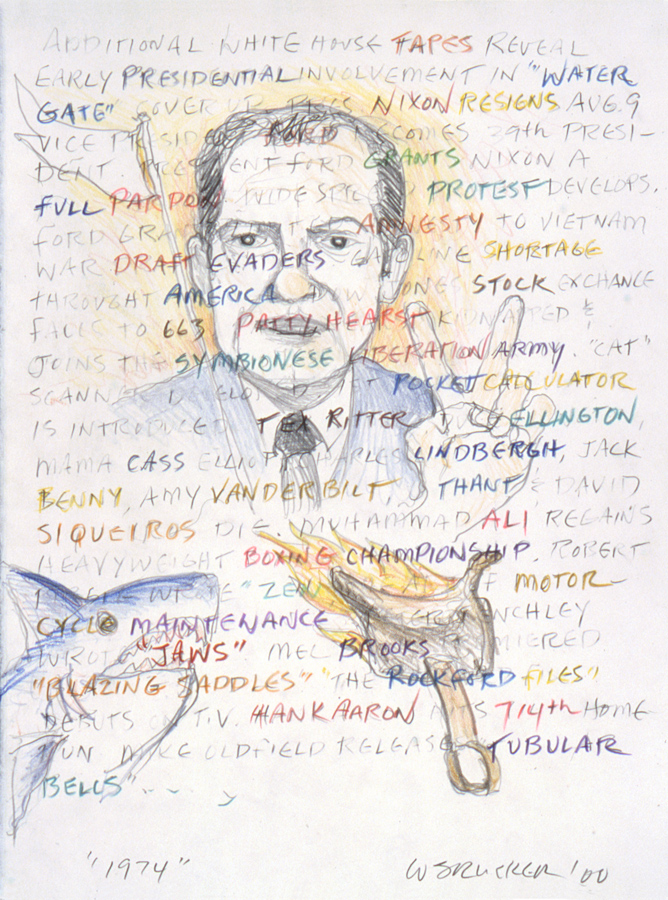 ADDITIONAL WHITE HOUSE TAPES REVEAL
EARLY PRESIDENTIAL INVOLVEMENT IN "WATER
GATE" COVER UP. PRES. NIXON RESIGNS AUG. 9
VICE PRESIDENT FORD BECOMES 39th PRESI-
DENT. PRESIDENT FORD GRANTS NIXON A
FULL PARDON WIDE SPREAD PROTEST DEVELOPS.
FORD GRANTS AMNESTY TO VIETNAM
WAR DRAFT EVADERS GASOLINE SHORTAGE
THROUGHT AMERICA DOW JONES STOCK EXCHANGE
FALLS TO 663 PATTY HEARST KIDNAPPED &
JOINS THE SYMBIONESE LIBERATION ARMY. "CAT"
SCANNER DEVELOPED POCKET CALCULATOR
IS INTRODUCED TEX RITTER DUKE ELLINGTON,
MAMA CASS ELLIOT CHARLES LINDBERGH, JACK
BENNY, AMY VANDERBILT, U THANT & DAVID
SIQUEIROS DIE. MUHAMMAD ALI REGAINS
HEAVYWEIGHT BOXING CHAMPIONSHIP. ROBERT
WROTE "ZEN OF MOTOR-
CYCLE MAINTENANCE PETER BENCHLEY
WROTE "JAWS" MEL BROOKS PREMIERED
"BLAZING SADDLES" "THE ROCKFORD FILES"
DEBUTS ON T.V. HANK AARON HITS 714th HOME
RUN MIKE OLDFIELD RELEASES "TUBULAR
BELLS"
"1974"
'00